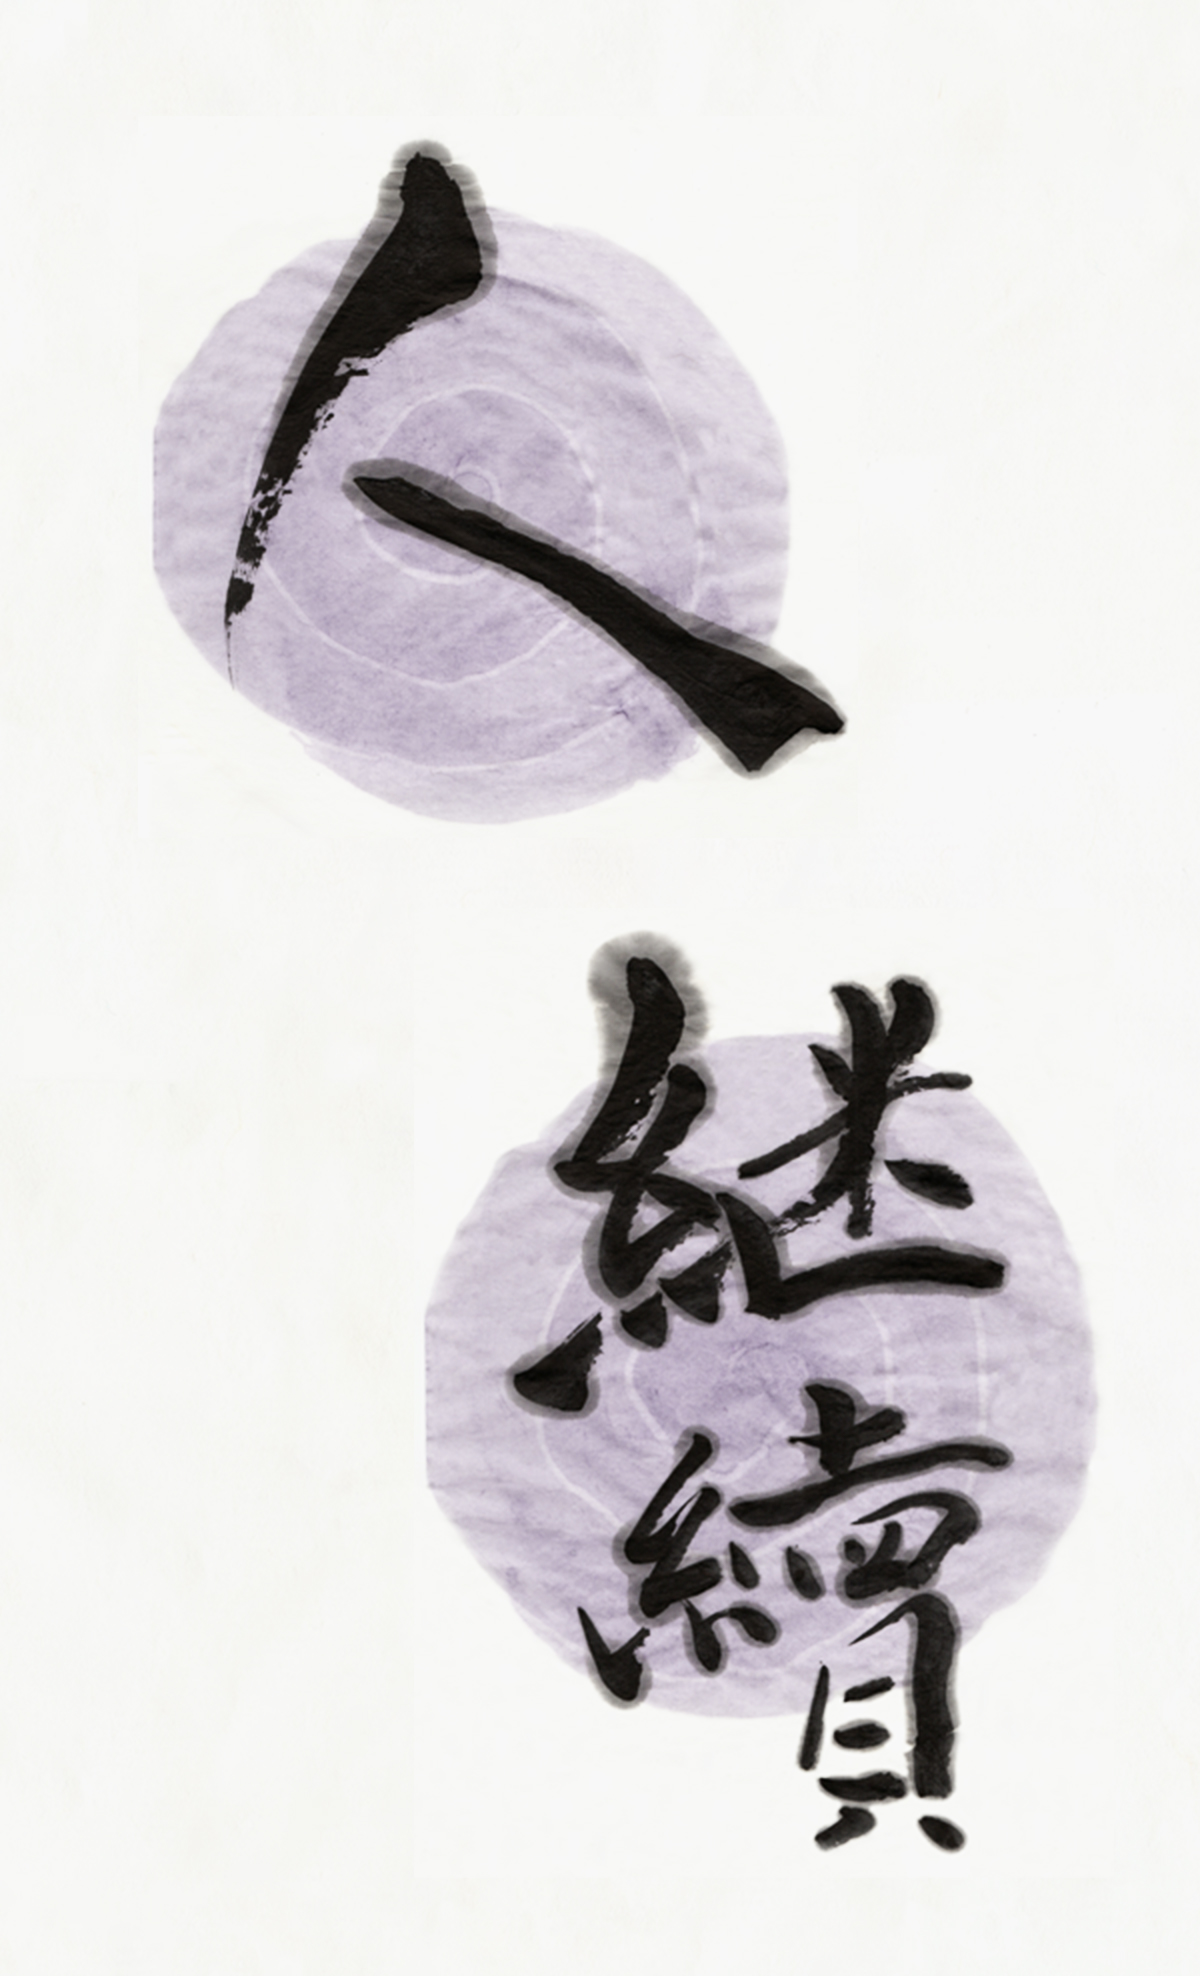 人
継
續